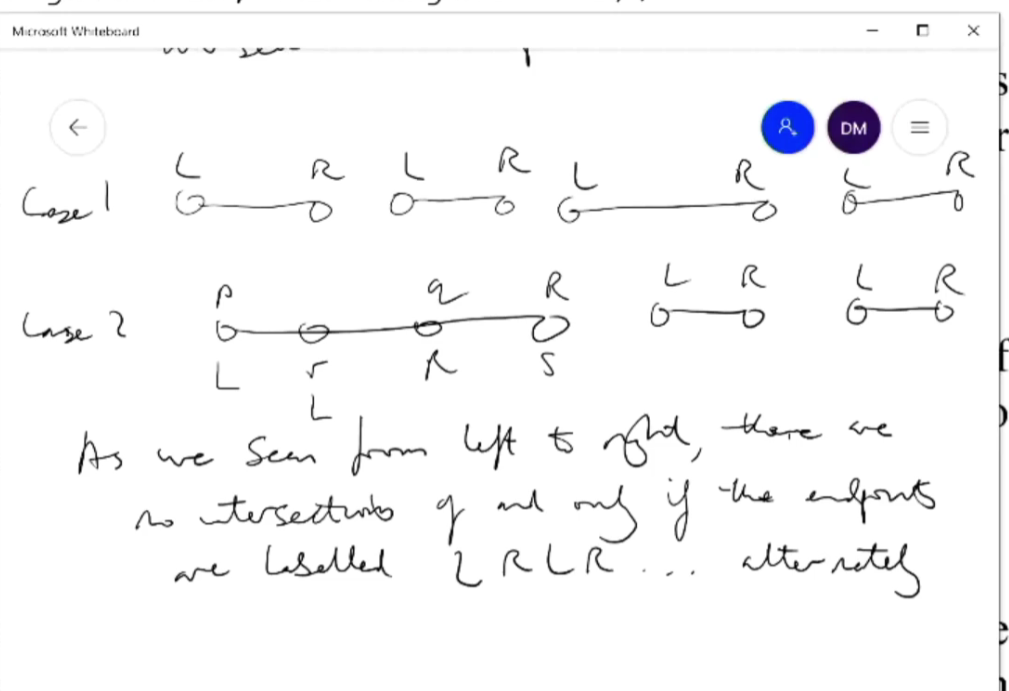 Microsoft Whiteboard
DM
L R L R L R L R
Case 1
p q R L R L R
Case 2
L r R S
L
As we scan from left to right, there are
no intersections if and only if the endpoints
are labelled L R L R ... alternately